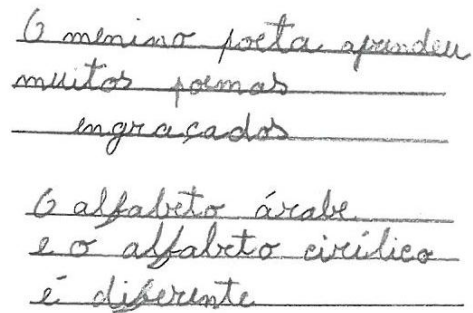 O menino poeta aprendeu
muitos poemas
engraçados
O alfabeto árabe
e o alfabeto cirílico
é diferente